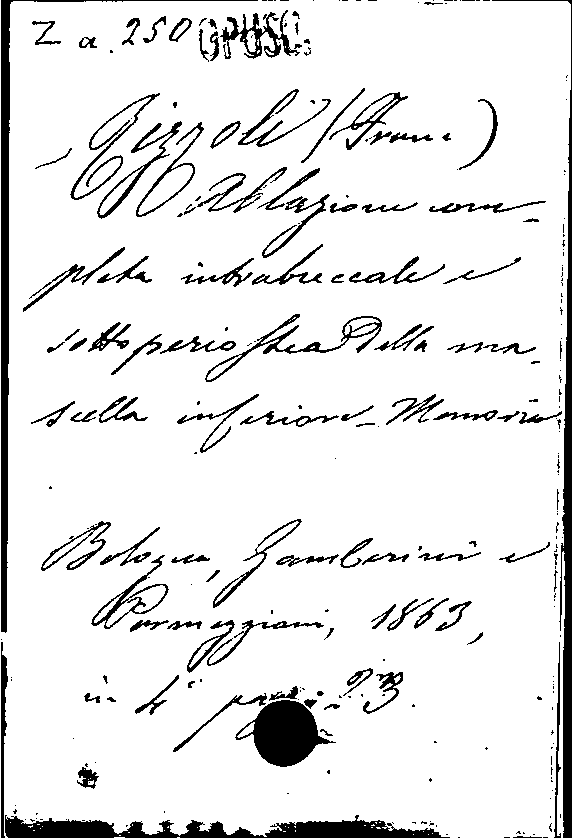 Z a. 250 OPUSC.
Rizzoli (Franc.)
Ablazione com-
pleta intrabuccale e
sottoperiostea della ma-
scella inferiore - Memoria
Bologna, Gamberini e
Parmeggiani, 1863,
in 4°